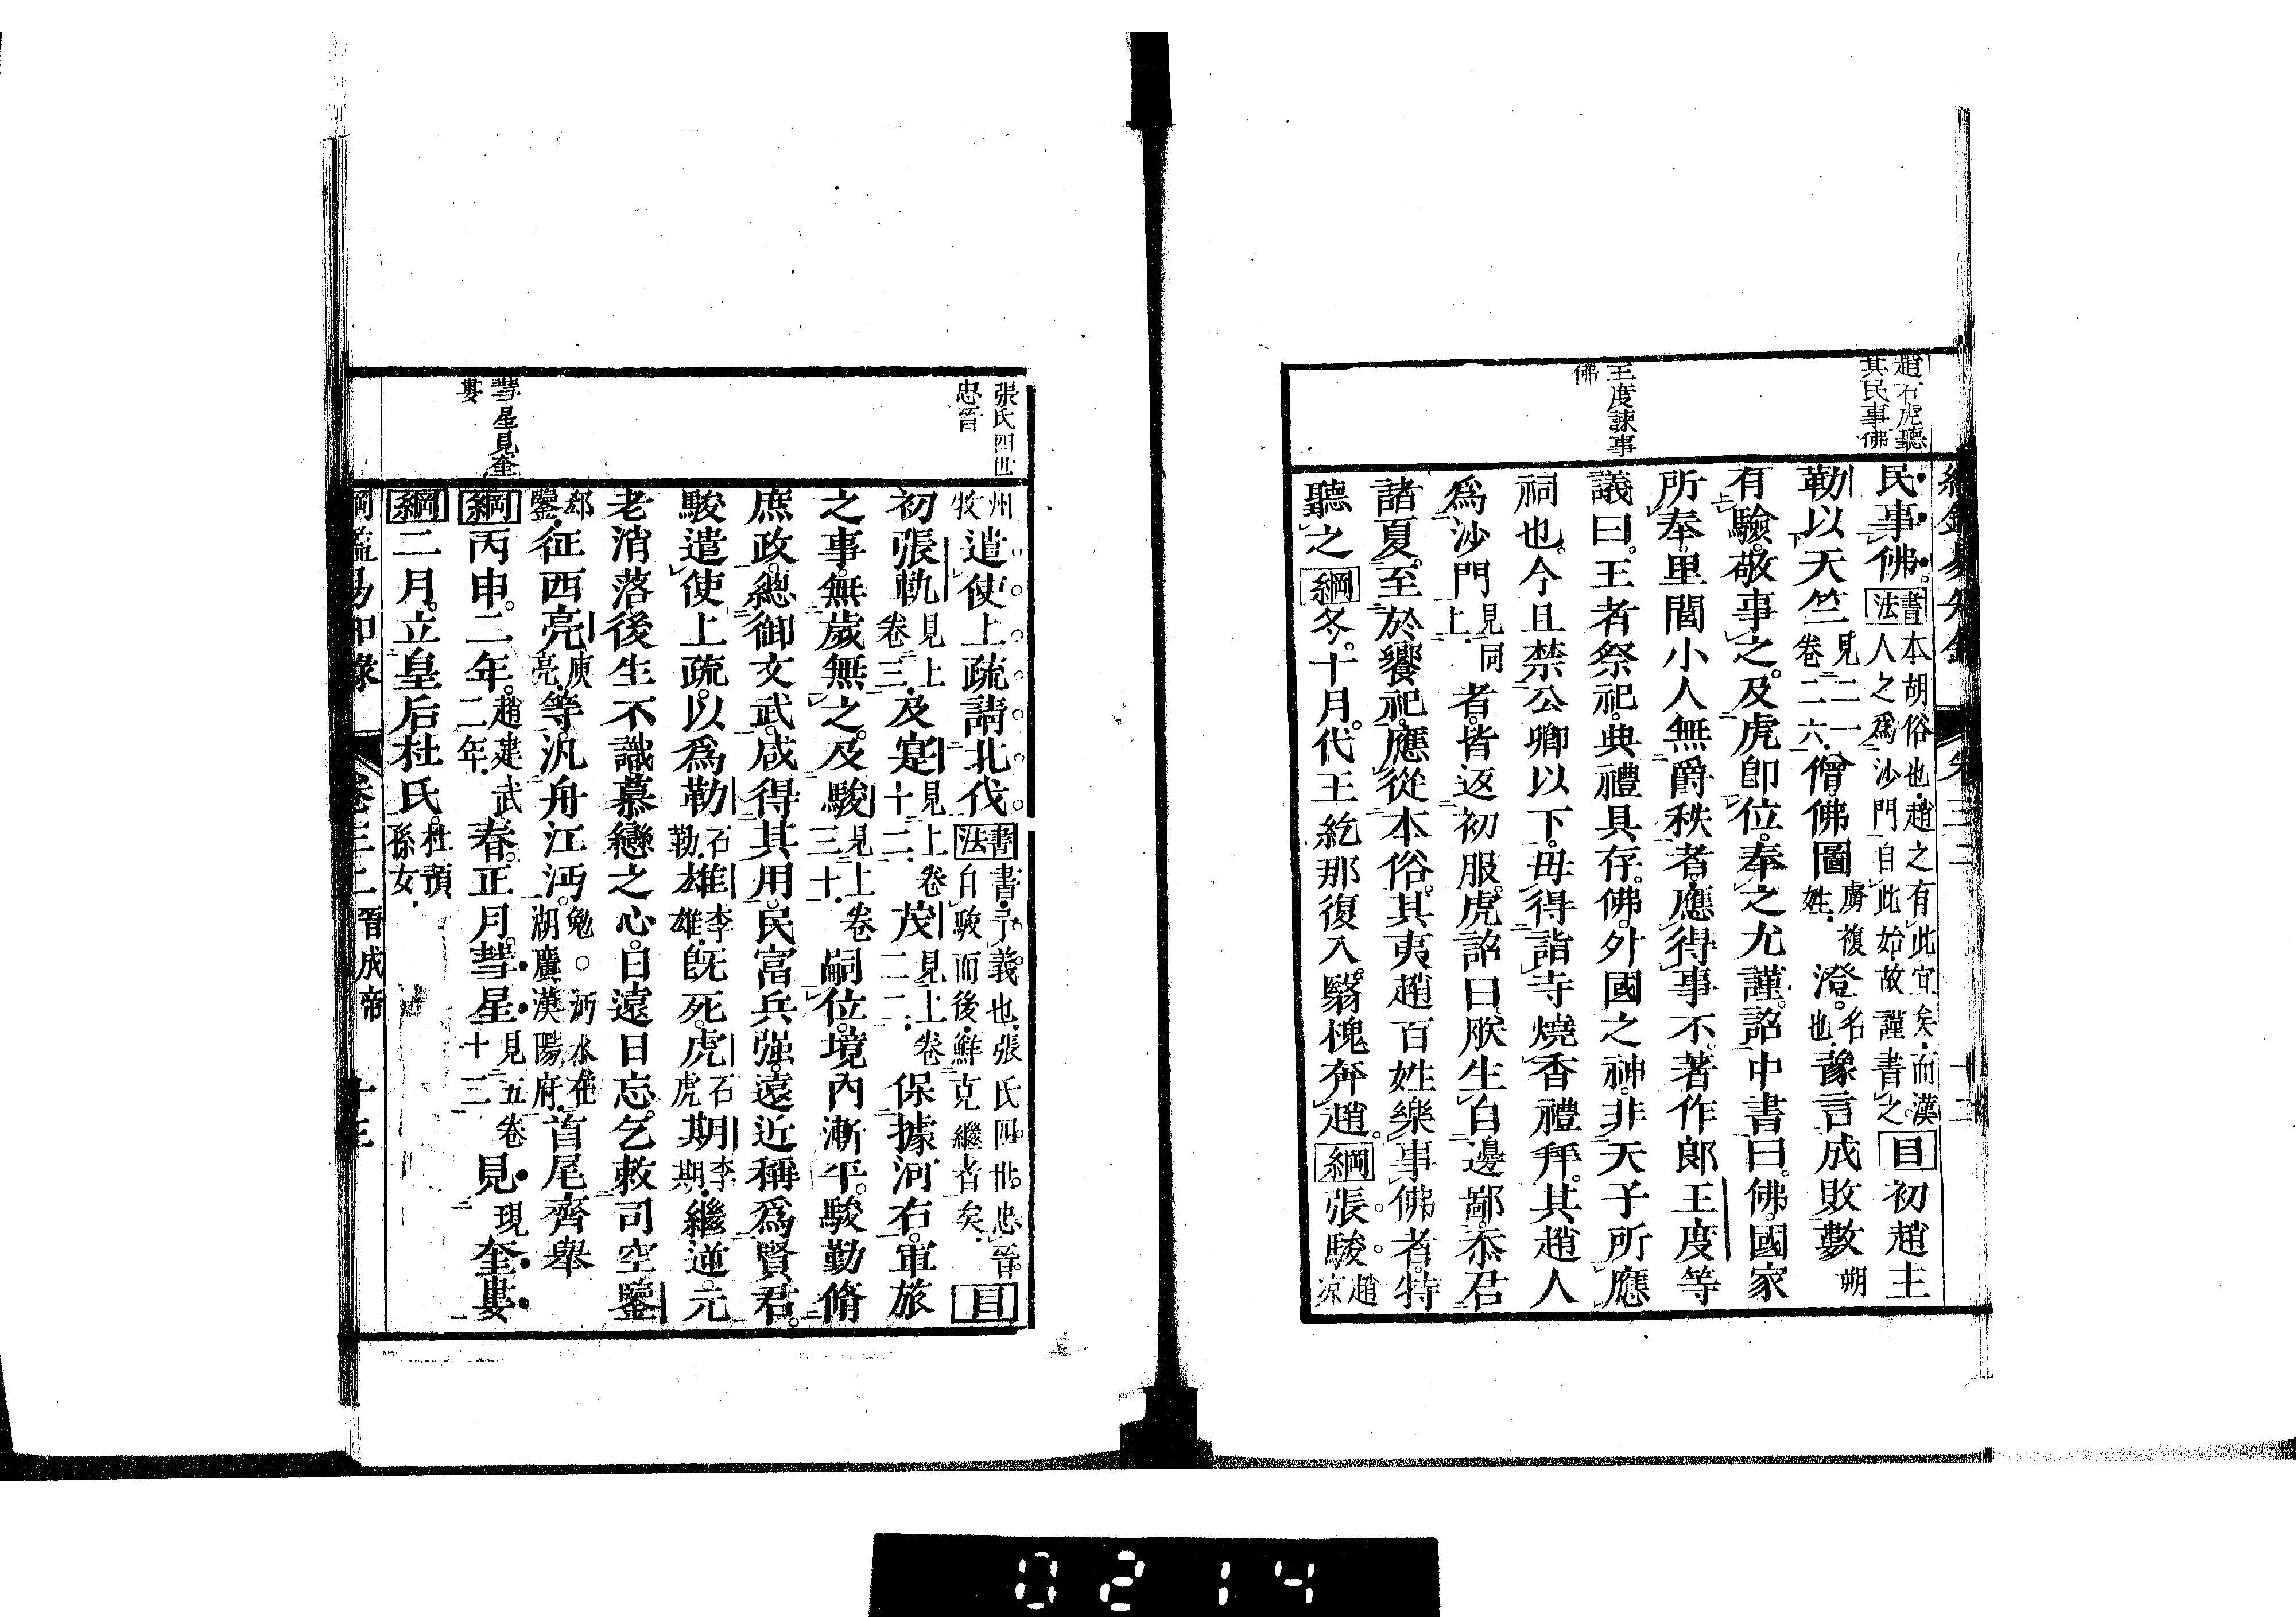 趙石虎聽
其民事佛
王度諫事
佛
民事佛。書法本胡俗也。趙之有此宜矣。而漢人之爲沙門自此始。故謹書之。目初趙主
勒以天竺見二一卷二六。僧佛圖虜複姓。澄。名也。豫言成敗數朔
有驗。敬事之。及虎卽位。奉之尤謹。詔中書曰。佛。國家
所奉。里閭小人無爵秩者。應得事不。著作郎王度等
議曰。王者祭祀。典禮具存。佛。外國之神。非天子所應
祠也。今且禁公卿以下。毋得詣寺燒香禮拜。其趙人
爲沙門見同上。者。皆返初服。虎詔曰。朕生自邊鄙。忝君
諸夏。至於饗祀。應從本俗。其夷趙百姓樂事佛者。特
聽之綱冬。十月。代王紇那復入。翳槐奔趙。綱張駿趙涼
張氏四世
忠晉
彗星見奎
婁
州牧遣使上疏請北伐。書法書。予義也。張氏四世忠晉。自駿而後。鮮克繼者矣。目
初張軌見上卷三。及寔見上十二。茂見上卷二二。保據河右。軍旅
之事。無歲無之。及駿見上卷三十。嗣位。境內漸平。駿勤脩
庶政。總御文武。咸得其用。民富兵强。遠近稱爲賢君。
駿遣使上疏。以爲勒石勒。雄李雄。旣死。虎石虎期李期。繼逆。元
老消落。後生不識。慕戀之心。日遠日忘。乞敕司空鑒
郄鑒。征西亮庾亮。等。汎舟江沔。勉。○沔水在湖廣漢陽府。首尾齊舉
綱丙申。二年。趙建武二年。春。正月。彗星見五卷十三見現奎婁
綱二月。立皇后杜氏。杜預孫女。
綱鑑易知錄 卷三二晉成帝 十三
0214